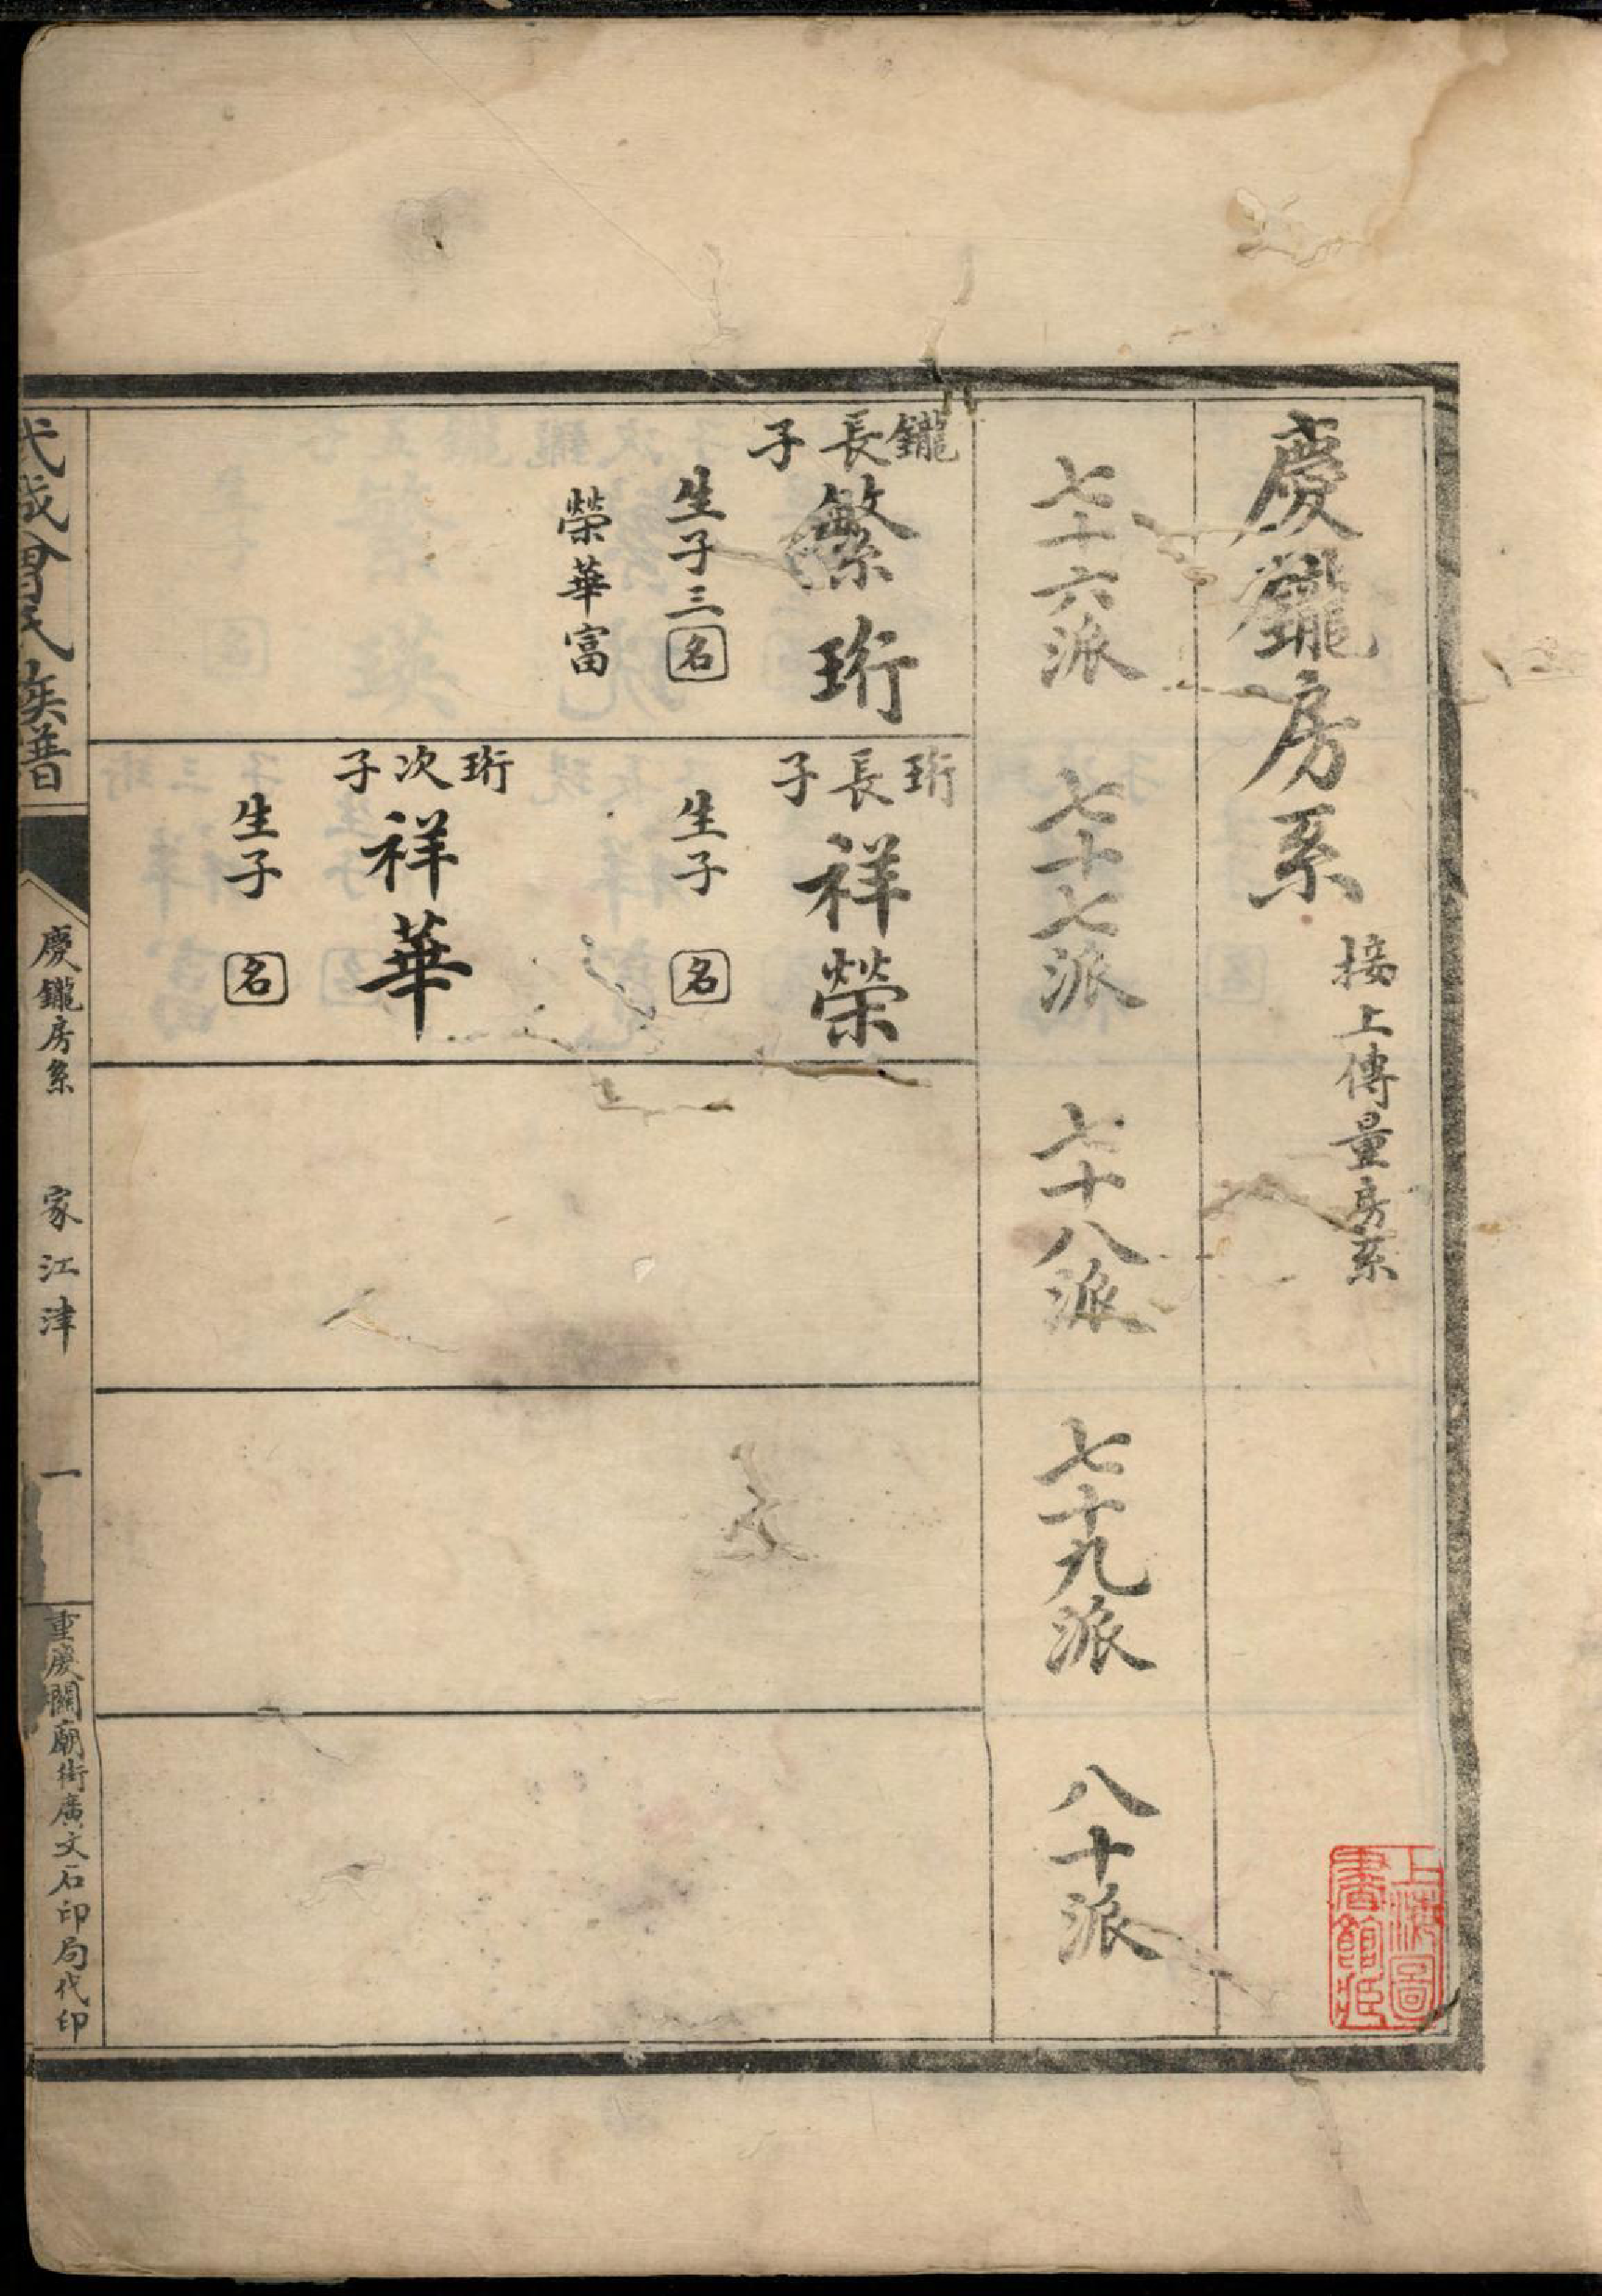 慶鑨房系
接上傳量房系
七十六派
七十七派
七十八派
七十九派
八十派
鑨長子
繁珩
生子三名
榮華富
珩長子
祥榮
生子名
珩次子
祥華
生子名
弍成曾氏族譜
慶鑨房系
家江津
一
重慶關廟街廣文石印局代印
上海圖書館藏